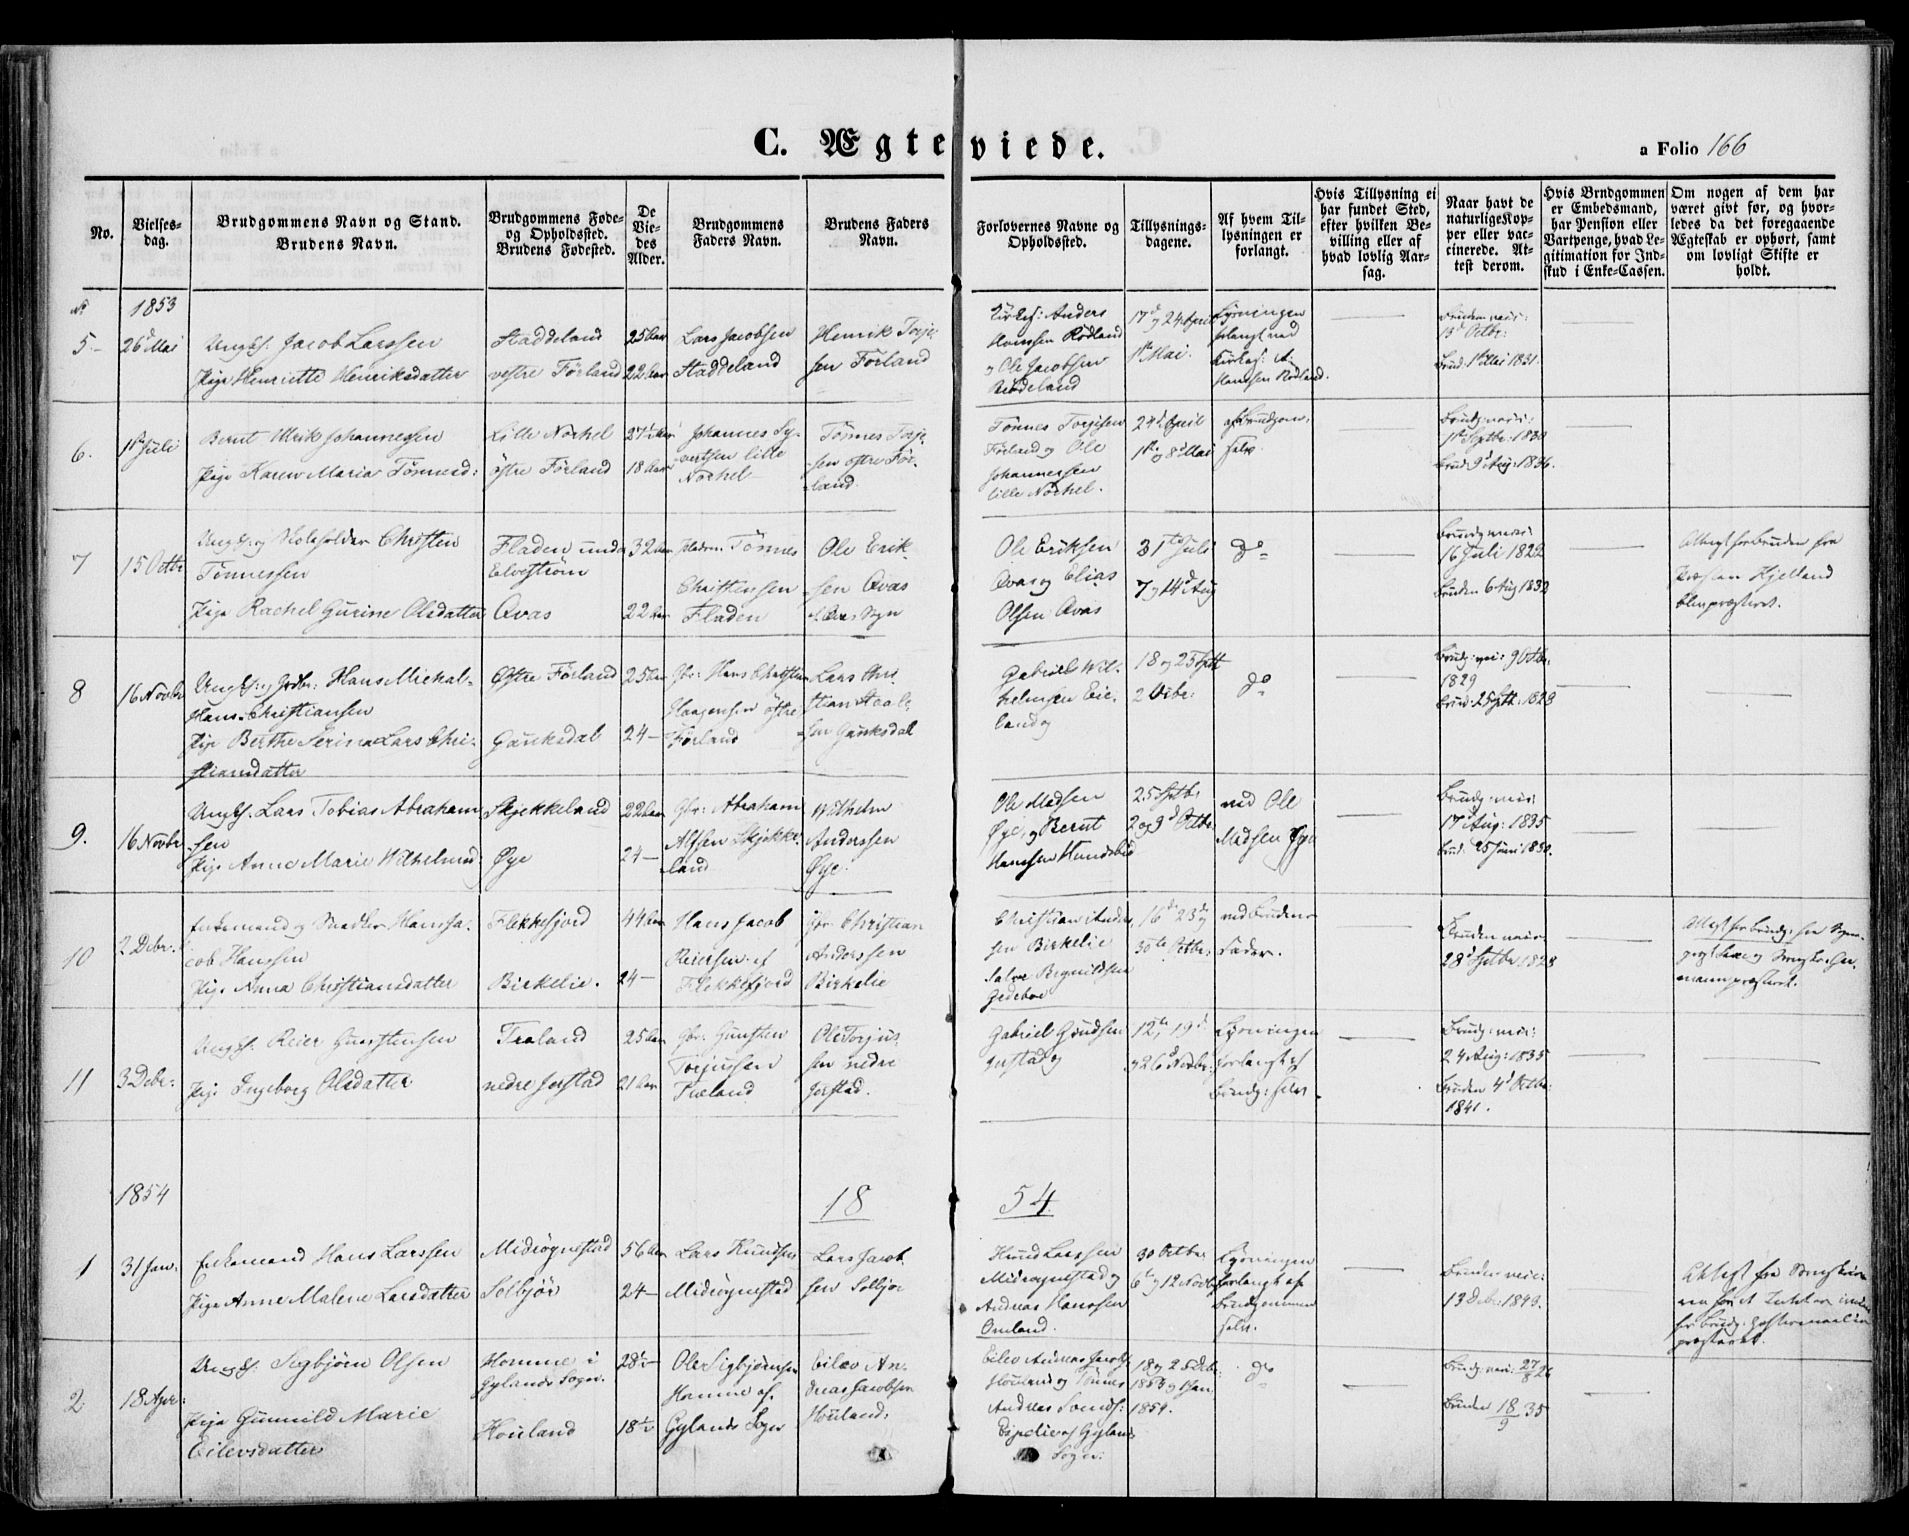 C. Ægteviede.
a Folio 166
No.
Vielses-
dag.
Brudgommens Navn og Stand.
Brudens Navn.
Brudgommens Føde-
og Opholdssted.
Brudens Fødested.
De
Vie-
des
Alder.
Brudgommens
Faders Navn.
Brudens Faders
Navn.
Forlovernes Navne og
Opholdssted.
Tillysnings-
dagene.
Af hvem Til-
lysningen er
forlangt.
Hvis Tillysning ei
har fundet Sted,
efter hvilken Be-
villing eller af
hvad lovlig Aar-
sag.
Naar havt de
naturlige Kop-
per eller vac-
cinerede. At-
test derom.
Hvis Brudgommen
er Embedsmand,
har Pension eller
Vartpenge, hvad Le-
gitimation for Ind-
skud i Enke-Cassen.
Om nogen af dem har
været givt før, og hvor-
ledes da det foregaaende
Ægteskab er ophørt, samt
om lovligt Skifte er
holdt.
1853
5
26d Mai
Ungk. Jacob Larssen
Pige Henriette Henriksdatter
Staddeland
vestre Førland
25 Aar
22 Aar
Lars Jacobsen
Staddeland
Henrik Torje-
sen Førland
Kirkes: Anders
Hanssen Rødland
og Ole Jacobsen
17d og 24 April
1ste Mai
Lysningen
forlangt ved
Kirkes: A:
Hanssen Rødland.
13d Octbr:
Brud. 1ste Mai 1831.
6.
1ste Juli
Bernt Ulrik Johannessen
Pige Karen Maria Tønnesd:
Lille Nochel
østre Førland
27½ Aar
18 Aar
Johannes Sy-
vertsen lille
Nochel
Tønnes Torje-
sen østre Før-
land.
Tønnes Torjesen
Førland og Ole
Johannessen
lille Nochel.
24d April
1ste og 8d Mai
af Brudgom.
selv.
1ste Septbr: 1830
Brud. 9d Aug: 1836.
7
15 Octbr
Ungk. og Skoleholder Christen
Tønnessen
Pige Rachel Gurine Olsdatter
Fladen under
Elvestrøm
Avas
32 Aar
22 Aar
Tønnes
Christensen
Fladen
Ole Erik-
sen Avas
Ole Eriksen
Avas og Elias
Olsen Avas
31te Juli
7 og 14d Aug
do
16 Juli 1822
Bruden 6 Aug 1832
Attest for Bruden fra
Præsten Kjelland
8
16 Novbr
Ungk. og Grdbr: Hans Michal
Hans Christiansen
Pige Berthe Serine Lars Chri-
stiansdatter
Østre Førland
Gauksdal
25 Aar
24 —
Gbr: Hans Christian
Haagensen østre
Førland
Lars Chri-
stian Staale-
sen Gauksdal
Gabriel Wil-
helmsen Eie-
land og
18 og 25 Septb
2 Octbr:
do
Brudg: vac: 9 Octbr.
1829
Brud: 25 Septb: 1829
9.
16 Novbr
Ungk. Lars Tobias Abraham-
sen
Pige Anne Marie Wilhelmsd:
Skjekkeland
Øye
22 Aar
24 —
Gbr: Abraham
Alfsen Skjekke-
land
Wilhelm
Anderssen
Øye.
Ole Madsen
Øye, og Bernt
Hanssen Hundsbed
25 Septbr
2 og 9d Octbr:
ved Ole
Madsen Øye
Brudg: vac:
17d Aug: 1835
Brud: 25 Juni 1830.
10
2 Debr.
Enkemand og Snedker Hans Ja-
cob Hanssen
Pige Anna Christiansdatter
Flekkefjord
Birkelie.
44 Aar
24 —
Hans Jacob
Reiersen af
Flekkefjord
Gbr. Christian
Anderssen
Birkelie
Christian Anders-
sen Birkelie
Gedeboe
16de 23de og
30te Octbr:
ved Brudens
Fader.
Bruden vac:
28d Septbr 1828
11
3 Debr:
Ungk. Reier Gunstensen
Pige Ingeborg Olsdatter
Træland
nedre Jerstad
25 Aar
21 Aar
Gbr. Gunsten
Torjussen
Træland
Ole Torjus-
sen nedre
Jerstad.
Gabriel Gundsen
Jerstad og
12te 19d
og 26d Novbr:
Lysningen
forlangt af
Brudg: selv.
Brudg: vac:
24 Aug: 1835
Bruden 4d Octbr:
1841.
1854
18
54
1
31 Jan:
Enkemand Hans Larssen
Pige Anne Malene Larsdatter
Midtøgnestad
Solbjør
56 Aar
24 —
Lars Knudsen
Midtøgnestad
Lars Jacob-
sen Solbjør
Knud Larssen
Midtøgnestad og
Andreas Hanssen
Omland.
30 Octbr
6te og 12 Novbr
Lysningen
forlangt af
Brudgommen
selv.
Bruden vac:
13 Debr: 1843.
2
18 Apr:
Ungk. Sigbjørn Olsen
Pige Gunnild Marie
Eilevsdatter
Homme i
Gylands Sogn.
Houland
28½ —
18½
Ole Sigbjørnsen
Homme af
Gylands Sogn
Eilev An-
dreas Jacobsen
Houland.
Eilev Andreas Jacobs.
Houland og Tønnes
Andreas
Espelie af Gylands
Sogn:
18 og 25 Debr:
1853 og 1 Jan
1854.
do
Brudg: vac: 27/8 26
Bruden 18/9 35